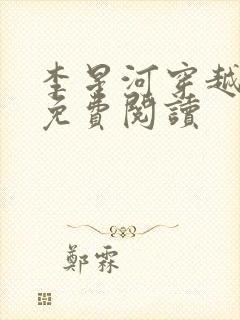 李星河穿越
免費閱讀
鄭霖